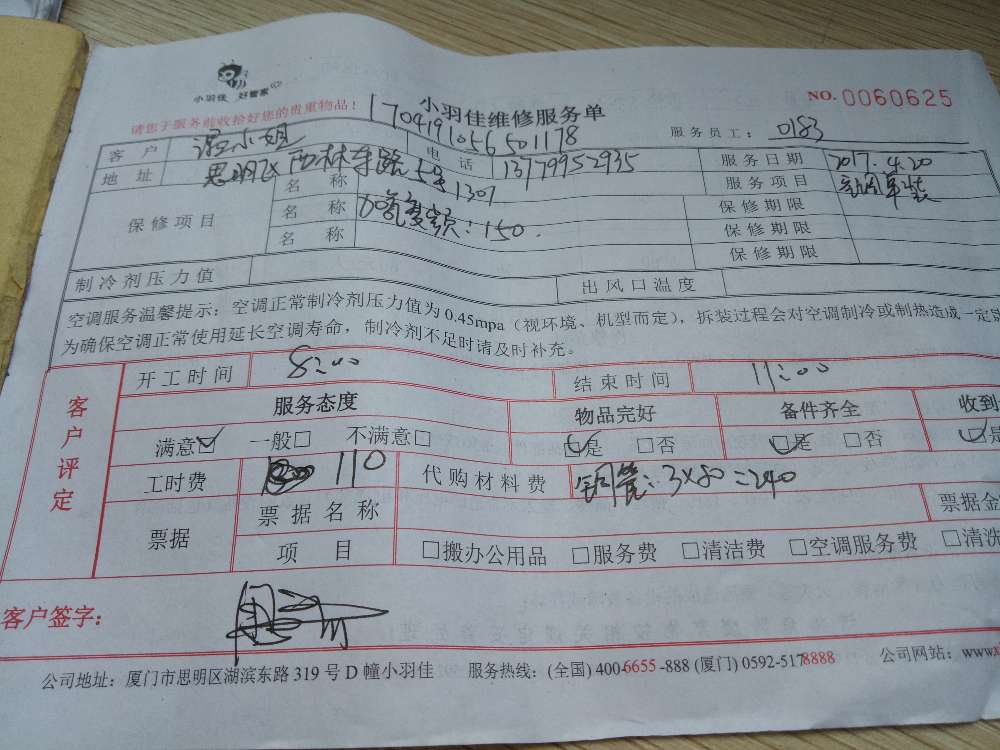 小羽佳 好管家
请您于服务前收拾好您的贵重物品！
小羽佳维修服务单
NO. 0060625
1704191056501178
服务员工： 0183
客户 小姐 电话 13779952935 服务日期 2017.4.20
地址 思明区西林东路 1307 服务项目 空调单装
保修项目 名称 保修期限
名称 150. 保修期限
名称 保修期限
制冷剂压力值 出风口温度
空调服务温馨提示：空调正常制冷剂压力值为0.45mpa（视环境、机型而定），拆装过程会对空调制冷或制热造成一定
为确保空调正常使用延长空调寿命，制冷剂不足时请及时补充。
客户评定
开工时间 8:00 结束时间 11:00
服务态度 物品完好 备件齐全 收到
满意☑ 一般□ 不满意□ ☑是 □否 ☑是 □否 ☑是
工时费 110 代购材料费 铜管：3×80=240
票据 票据名称 票据金
项目 □搬办公用品 □服务费 □清洁费 □空调服务费 □清洗
客户签字：
公司地址：厦门市思明区湖滨东路319号D幢小羽佳 服务热线：(全国) 400-6655-888 (厦门) 0592-5178888 公司网站：www